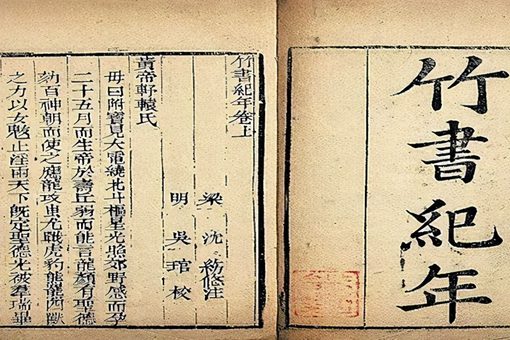 竹書紀年
竹書紀年卷上
梁 沈約附注
明 吳琯校
黃帝軒轅氏
母曰附寶見大電繞北斗樞星光照郊野感而孕
二十五月而生帝於壽丘弱而能言龍顏有聖德
劾百神朝而使之應龍攻蚩尤戰虎豹熊羆四獸
之力以女魃止淫雨天下既定聖德光被羣瑞畢